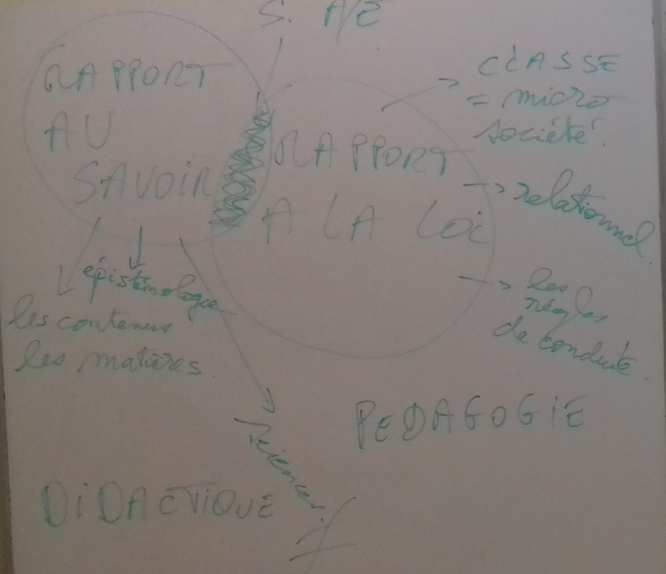 S. A/E
RAPPORT
AU
SAVOIR
RAPPORT
A LA LOi
CLASSE
= micro
société.
relationnel.
les
règles
de conduite.
épistémologie
les contenus
les matières.
Sciences.
PEDAGOGiE
DiDACTiQUE